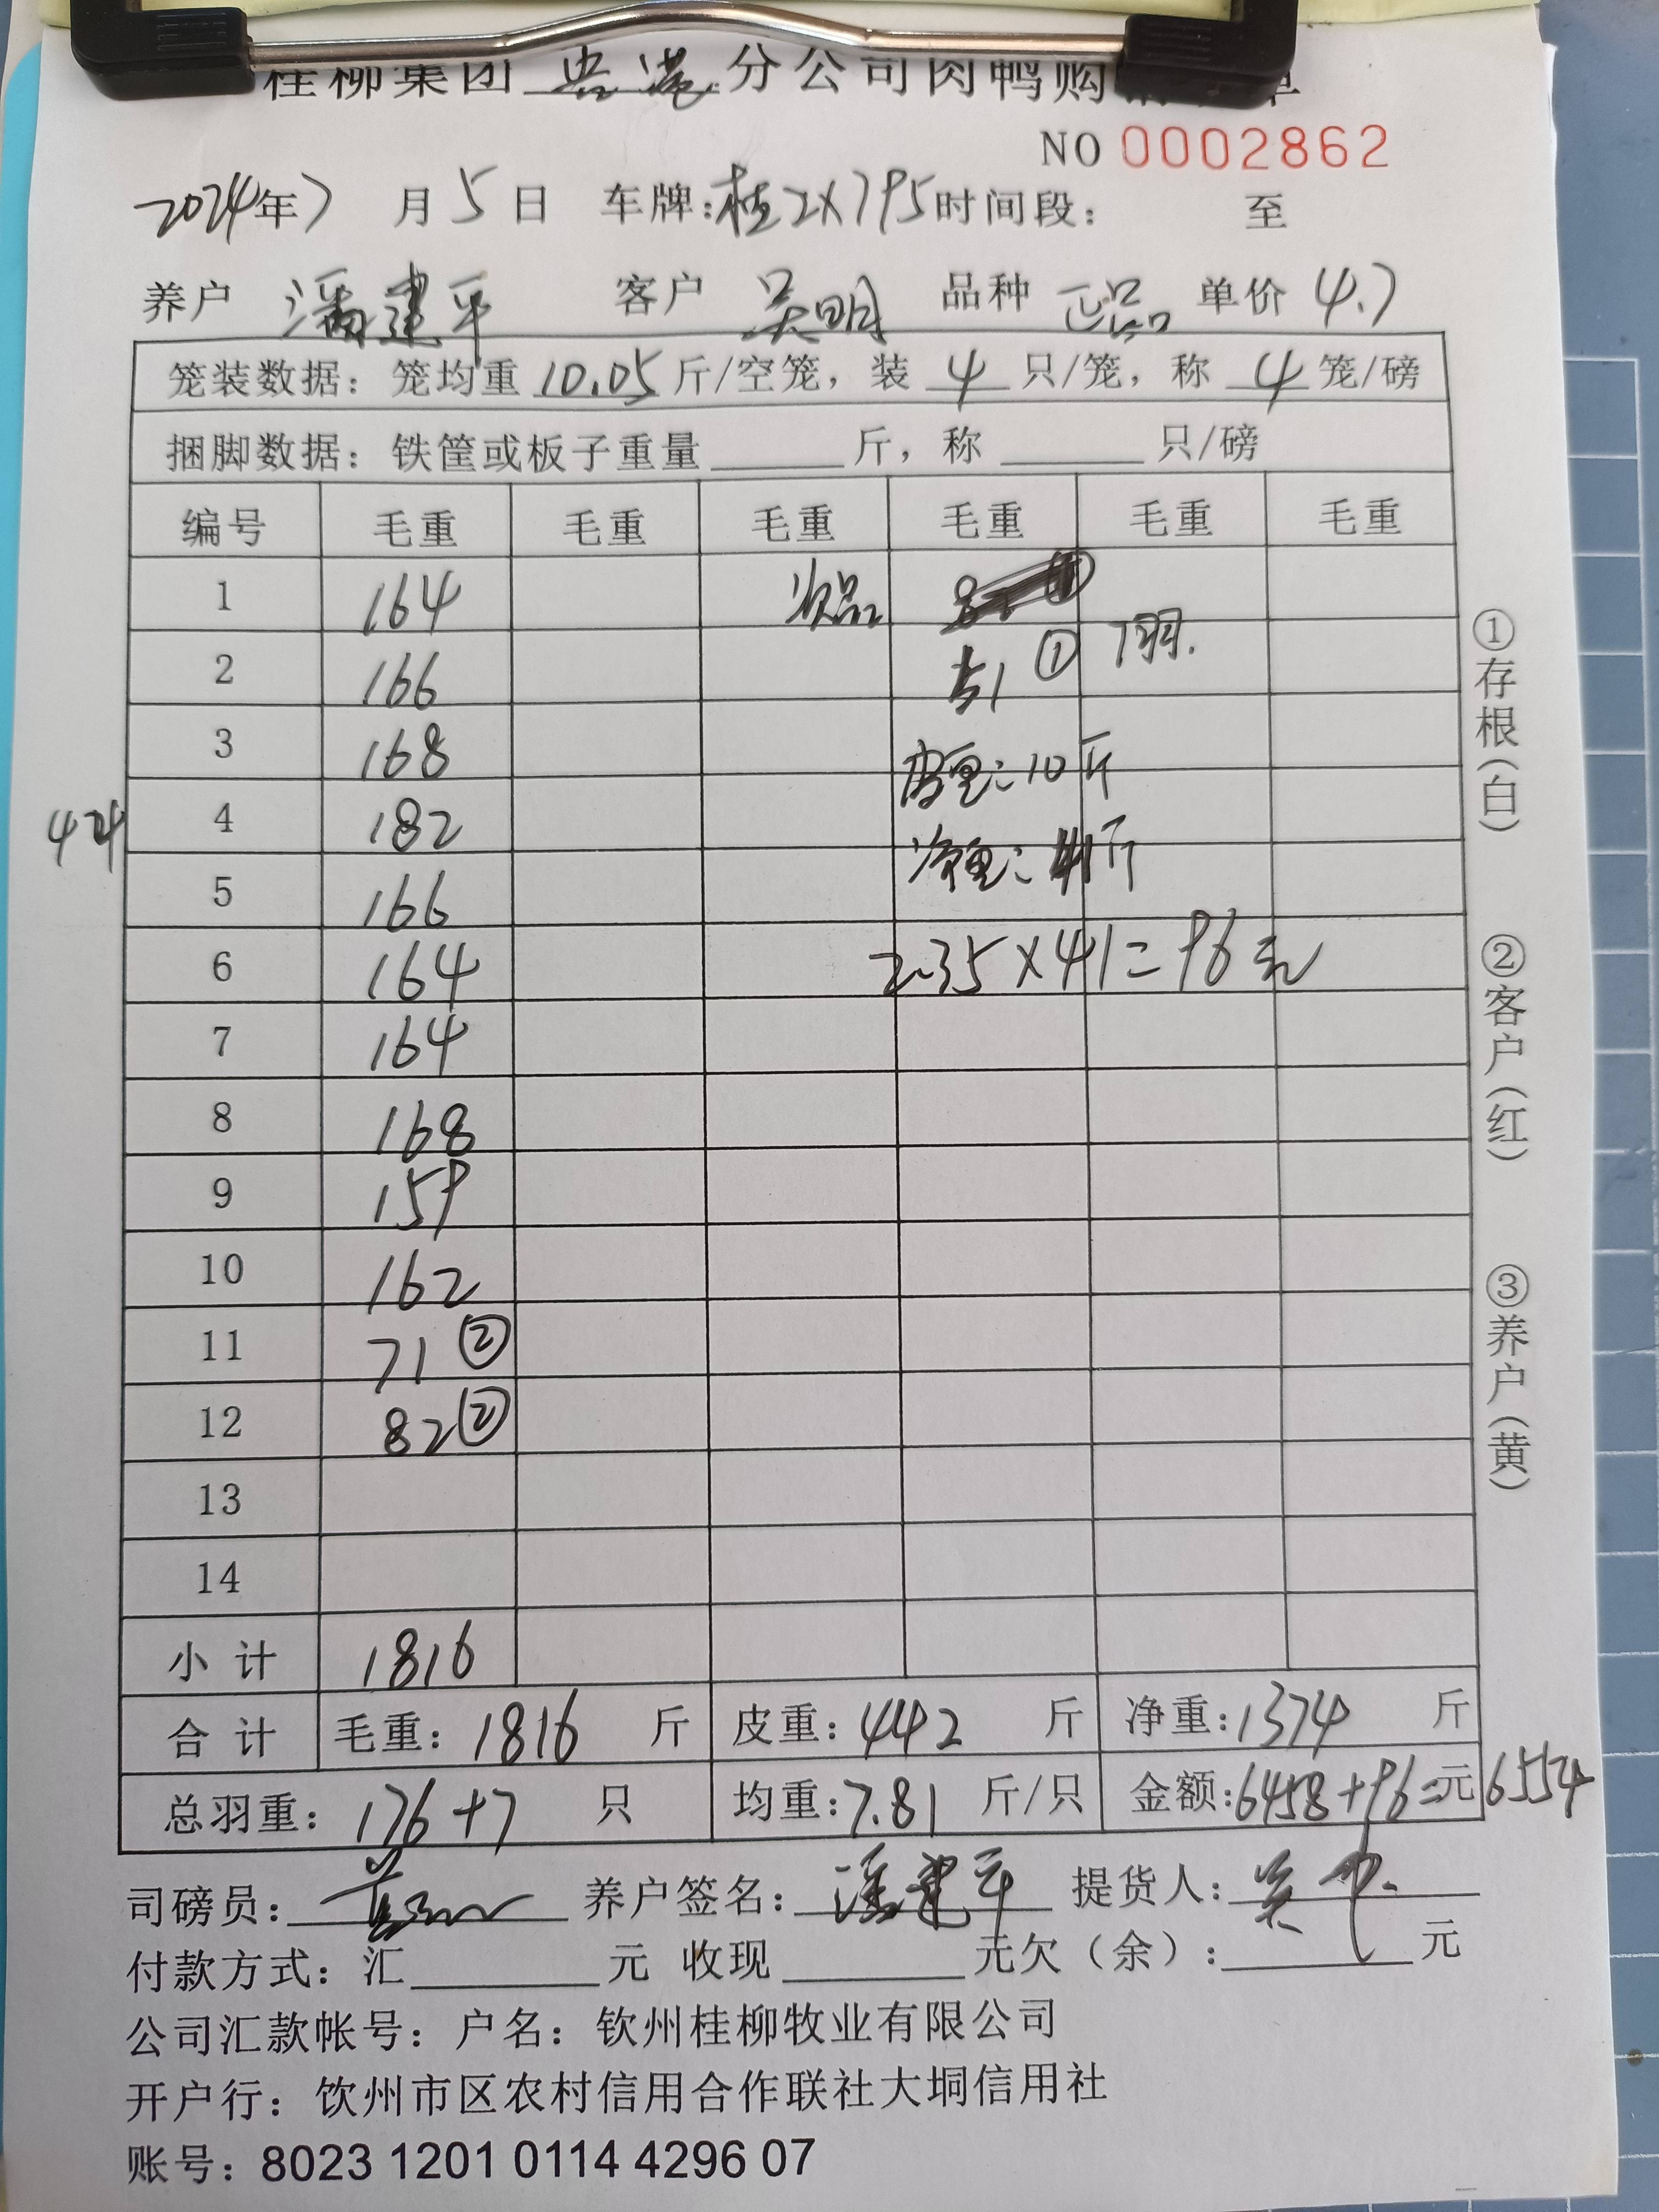 桂柳集团贵港分公司肉鸭购
NO 0002862
2024年7月5日 车牌:桂2X795时间段: 至
养户 潘建平 客户 吴明 品种 正品 单价 4.7
笼装数据: 笼均重 10.05 斤/空笼, 装 4 只/笼, 称 4 笼/磅
捆脚数据: 铁筐或板子重量 斤, 称 只/磅
编号 毛重 毛重 毛重 毛重 毛重 毛重
1 164 次品
2 166 51 ① 7羽.
3 168 皮重: 10斤
4 182 净重: 41斤
5 166
6 164 2.35×41=96元
7 164
8 168
9 159
10 162
11 71 ②
12 82 ②
13
14
小计 1816
合计 毛重: 1816 斤 皮重: 442 斤 净重: 1374 斤
总羽重: 176+7 只 均重: 7.81 斤/只 金额: 6458+96=元 6554
司磅员: 养户签名: 潘建平 提货人: 吴
付款方式: 汇 元 收现 元欠（余）: 元
公司汇款帐号: 户名: 钦州桂柳牧业有限公司
开户行: 钦州市区农村信用合作联社大垌信用社
账号: 8023 1201 0114 4296 07
①存根（白）
②客户（红）
③养户（黄）